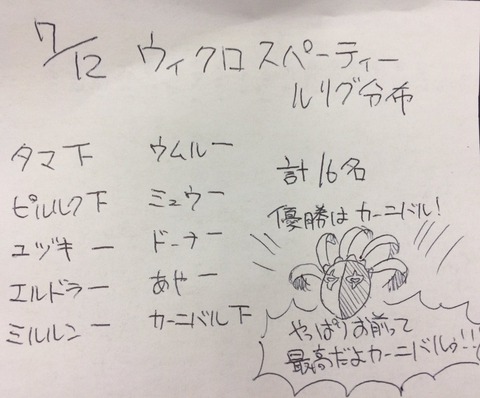 7/12 ウィクロスパーティー
ルリグ分布
タマ 下
ピルルク 下
ユヅキ 一
エルドラ 一
ミルルン 一
ウムル 一
ミュウ 一
ドーナ 一
あや 一
カーニバル 下
計16名
優勝はカーニバル!
やっぱりお前って
最高だよカーニバルゥ!!!